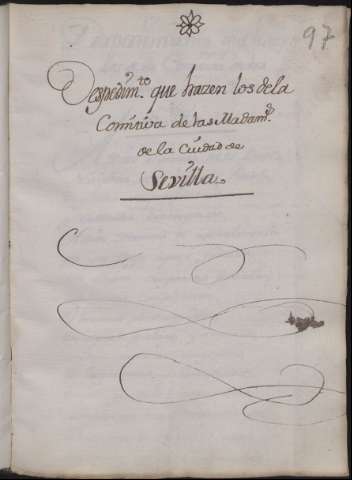 97
Despedim.to que hazen los dela
Comitiva de las Madam.s
de la Ciudad de
Sevilla.